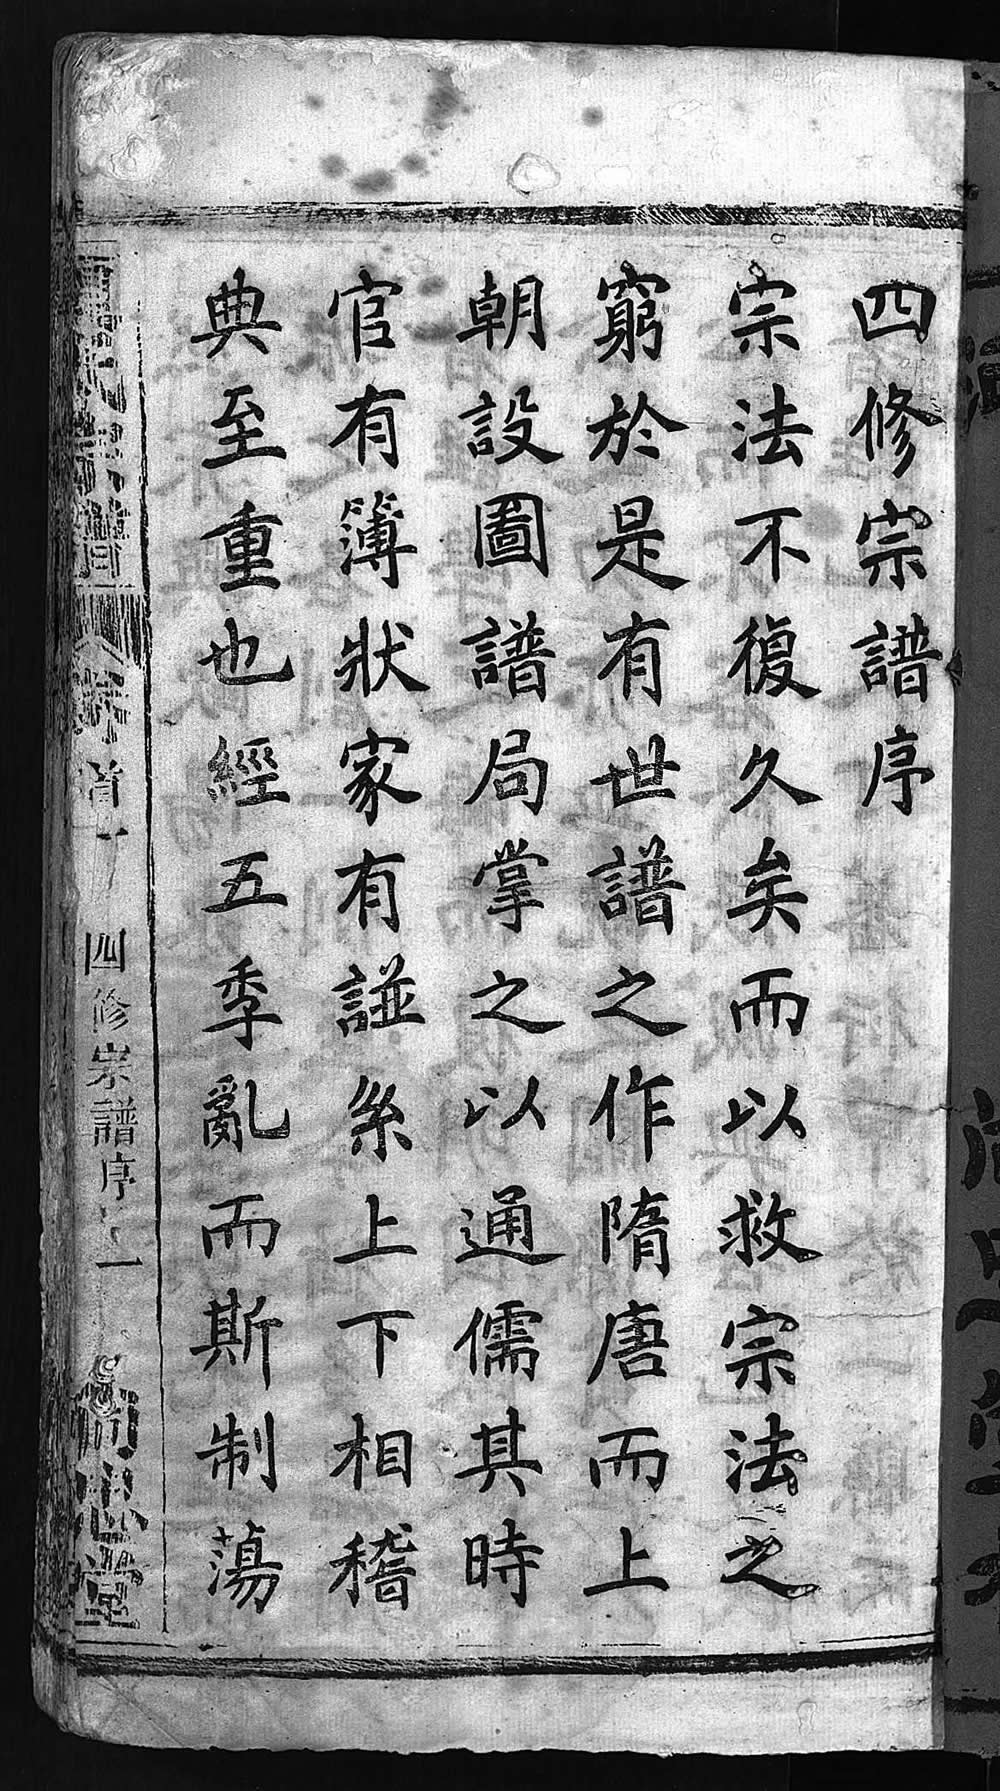 四修宗譜序
宗法不復久矣而以救宗法之
窮於是有世譜之作隋唐而上
朝設圖譜局掌之以通儒其時
官有簿狀家有譜系上下相稽
典至重也經五季亂而斯制蕩
卷首一 四修宗譜序 二